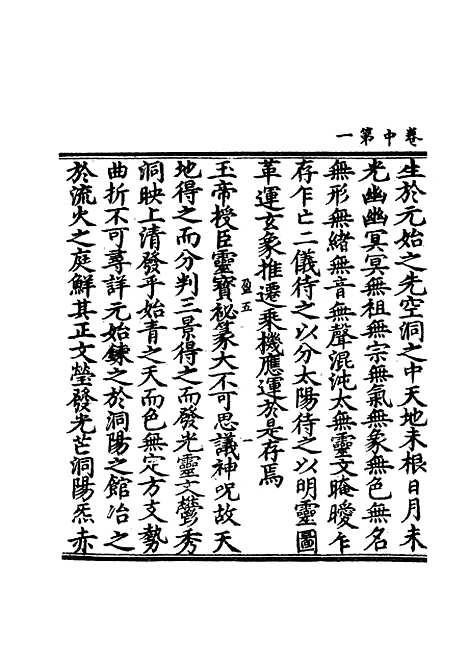 卷中第一
生於元始之先空洞之中天地未根日月未
光幽幽冥冥無祖無宗無氣無象無色無名
無形無緒無音無聲混沌太無靈文晻曖乍
存乍亡二儀待之以分太陽待之以明靈圖
革運玄象推遷乘機應運於是存焉
盈五
一
玉帝授臣靈寶祕篆大不可思議神呪故天
地得之而分判三景得之而發光靈文鬱秀
洞映上清發乎始青之天而色無定方文勢
曲折不可尋詳元始鍊之於洞陽之館冶之
於流火之庭鮮其正文瑩發光芒洞陽炁赤